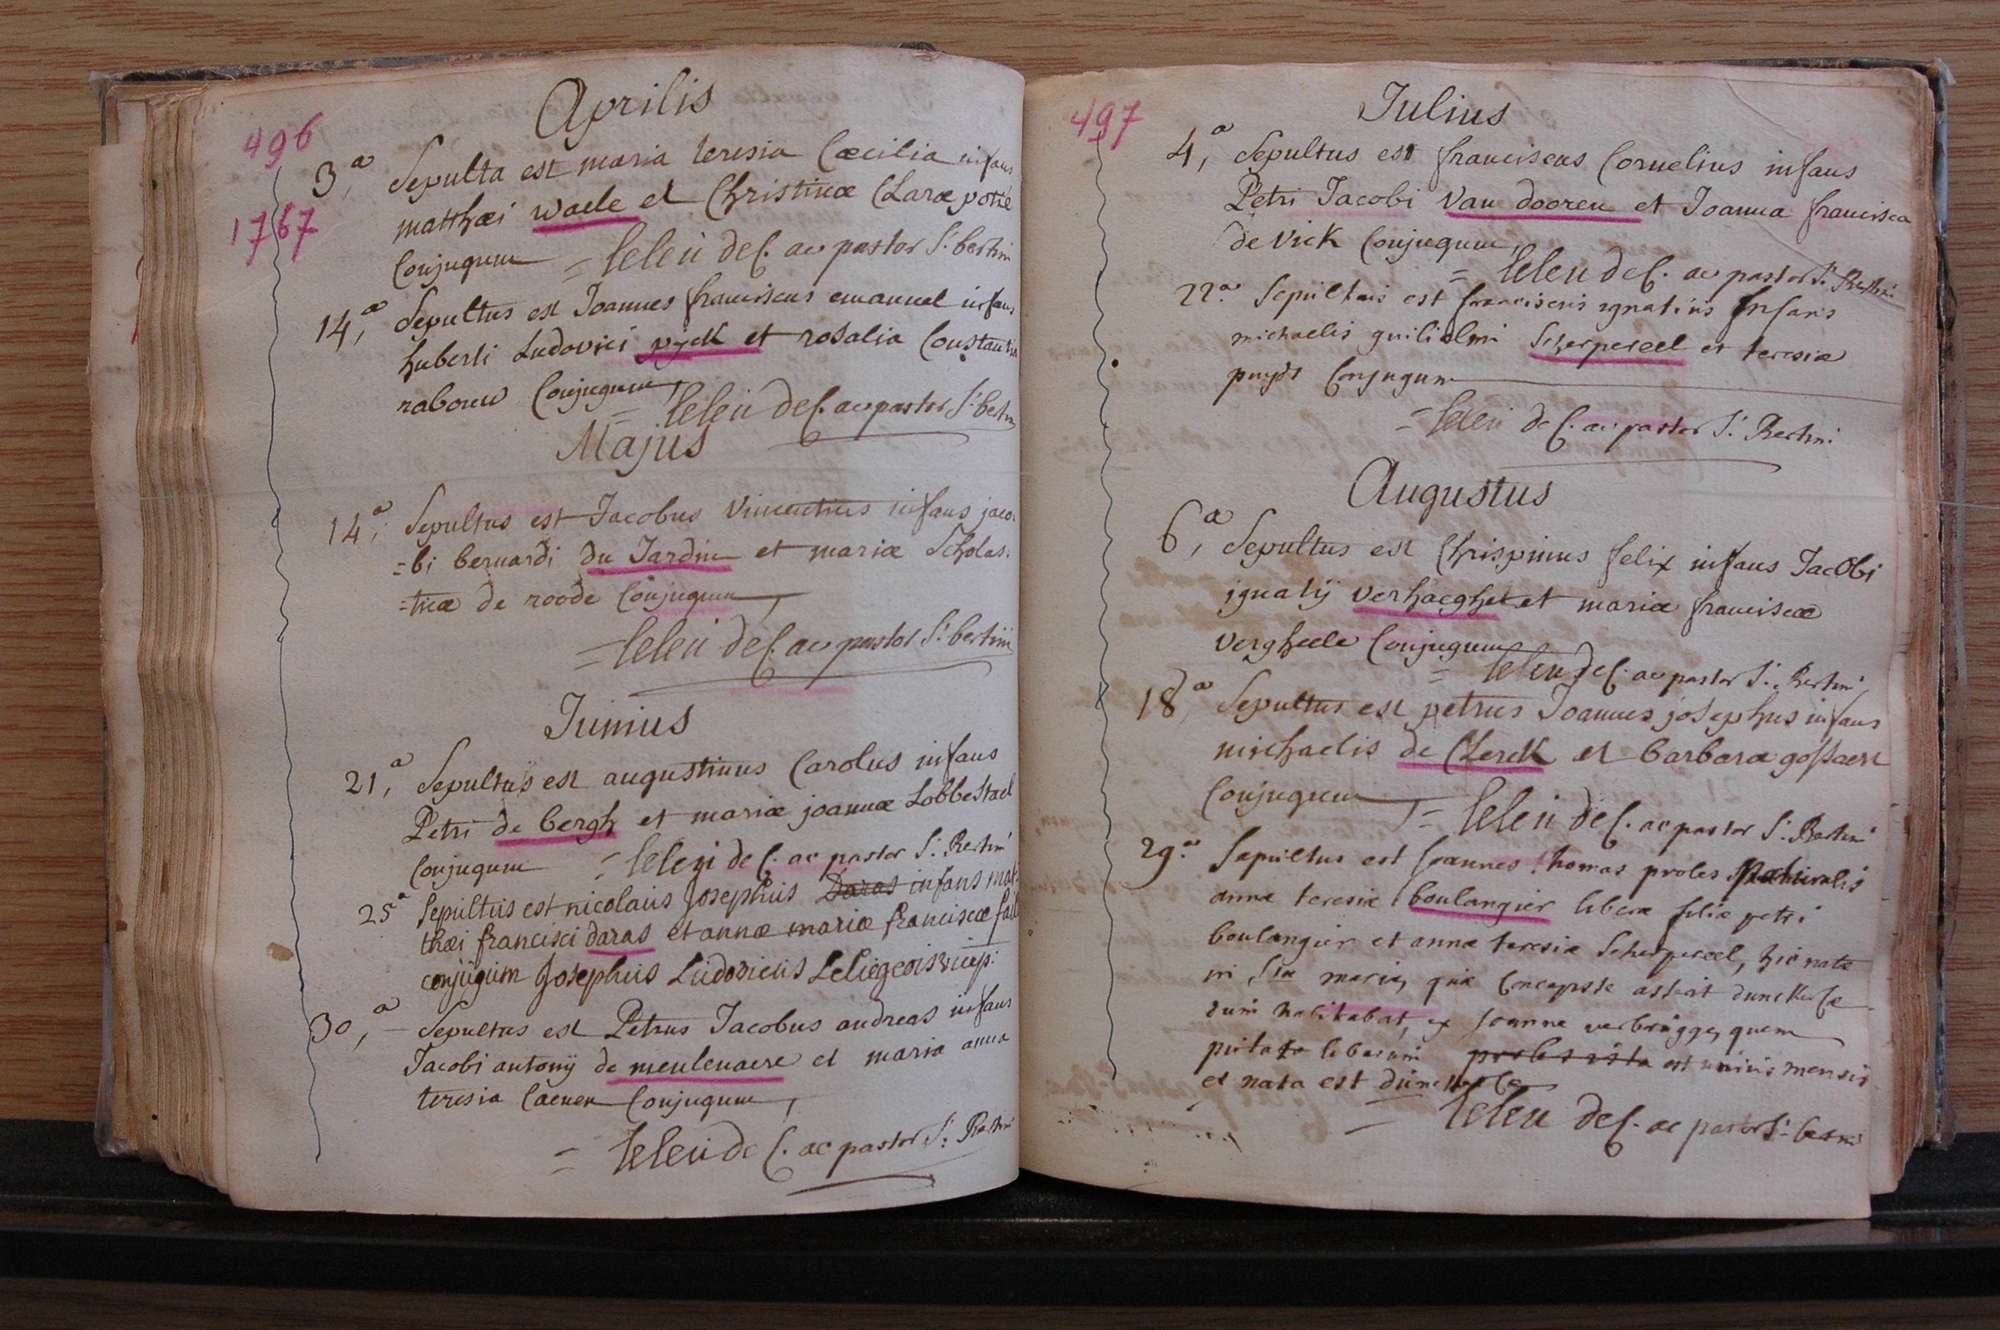 Aprilis
496
3,ᵃ Sepulta est maria teresia Cæcilia infans
1767
matthæi waele et Christinæ Claræ potié
Conjugum = leleu dec. ac pastor S.ᵗ bertini
14,ᵃ Sepultus est Joannes franciscus emanuel infans
huberti Ludovici pyck et rosalia Constantia
raboeu Conjugum,
= leleu dec. ac pastor S.ᵗ bertini
Majus
14,ᵃ Sepultus est Jacobus Vincentius infans jaco-
=bi bernardi du Jardin et mariæ Scholas-
=ticæ de roode Conjugum,
= leleu dec. ac pastor S.ᵗ bertini
Junius
21,ᵃ Sepultus est augustinus Carolus infans
Petri de bergh et mariæ joannæ Lobbestael
Conjugum = leleu dec. ac pastor S.ᵗ Bertini
25ᵃ Sepultus est nicolaus Josephus Daras infans mat-
thæi francisci daras et annæ mariæ franciscæ
conjugum Josephus Ludovicus Leliegeois vicep:
30,ᵃ Sepultus est Petrus Jacobus andreas infans
Jacobi antonij de meulenaere et maria anna
teresia Caenen Conjugum,
= leleu dec. ac pastor S.ᵗ Bertini
497
Julius
4,ᵃ Sepultus est franciscus Cornelius infans
Petri Jacobi Van dooren et Joanna francisca
de Vick Conjugum,
= leleu dec. ac pastor S.ᵗ Bertini
22.ᵃ Sepultus est franciscus ignatius Infans
michaelis guilielmi Scherpereel et teresiæ
puydt Conjugum
= leleu dec. ac pastor S.ᵗ Bertini
Augustus
6,ᵃ Sepultus est Chrispinus felix infans Jacobi
ignatij verhaeghe et mariæ franciscæ
vergheele Conjugum
= leleu dec. ac pastor S.ᵗ Bertini
18,ᵃ Sepultus est petrus Joannes josephus infans
michaelis de Clerck et barbara gossaert
Conjugum, = leleu dec. ac pastor S.ᵗ Bertini
29.ᵃ Sepultus est Joannes thomas proles Naturalis
annæ teresiæ boulangier liberæ filiæ petri
boulangier et annæ teresiæ Scherpereel, hic natæ
in maria, quæ Concepisse asserit dunckercæ
dum habitabat, ex Joanne verbrugge, quem
putat liberum proles ista est unius mensis
et nata est dunckercæ
= leleu dec. ac pastor S.ᵗ bertini